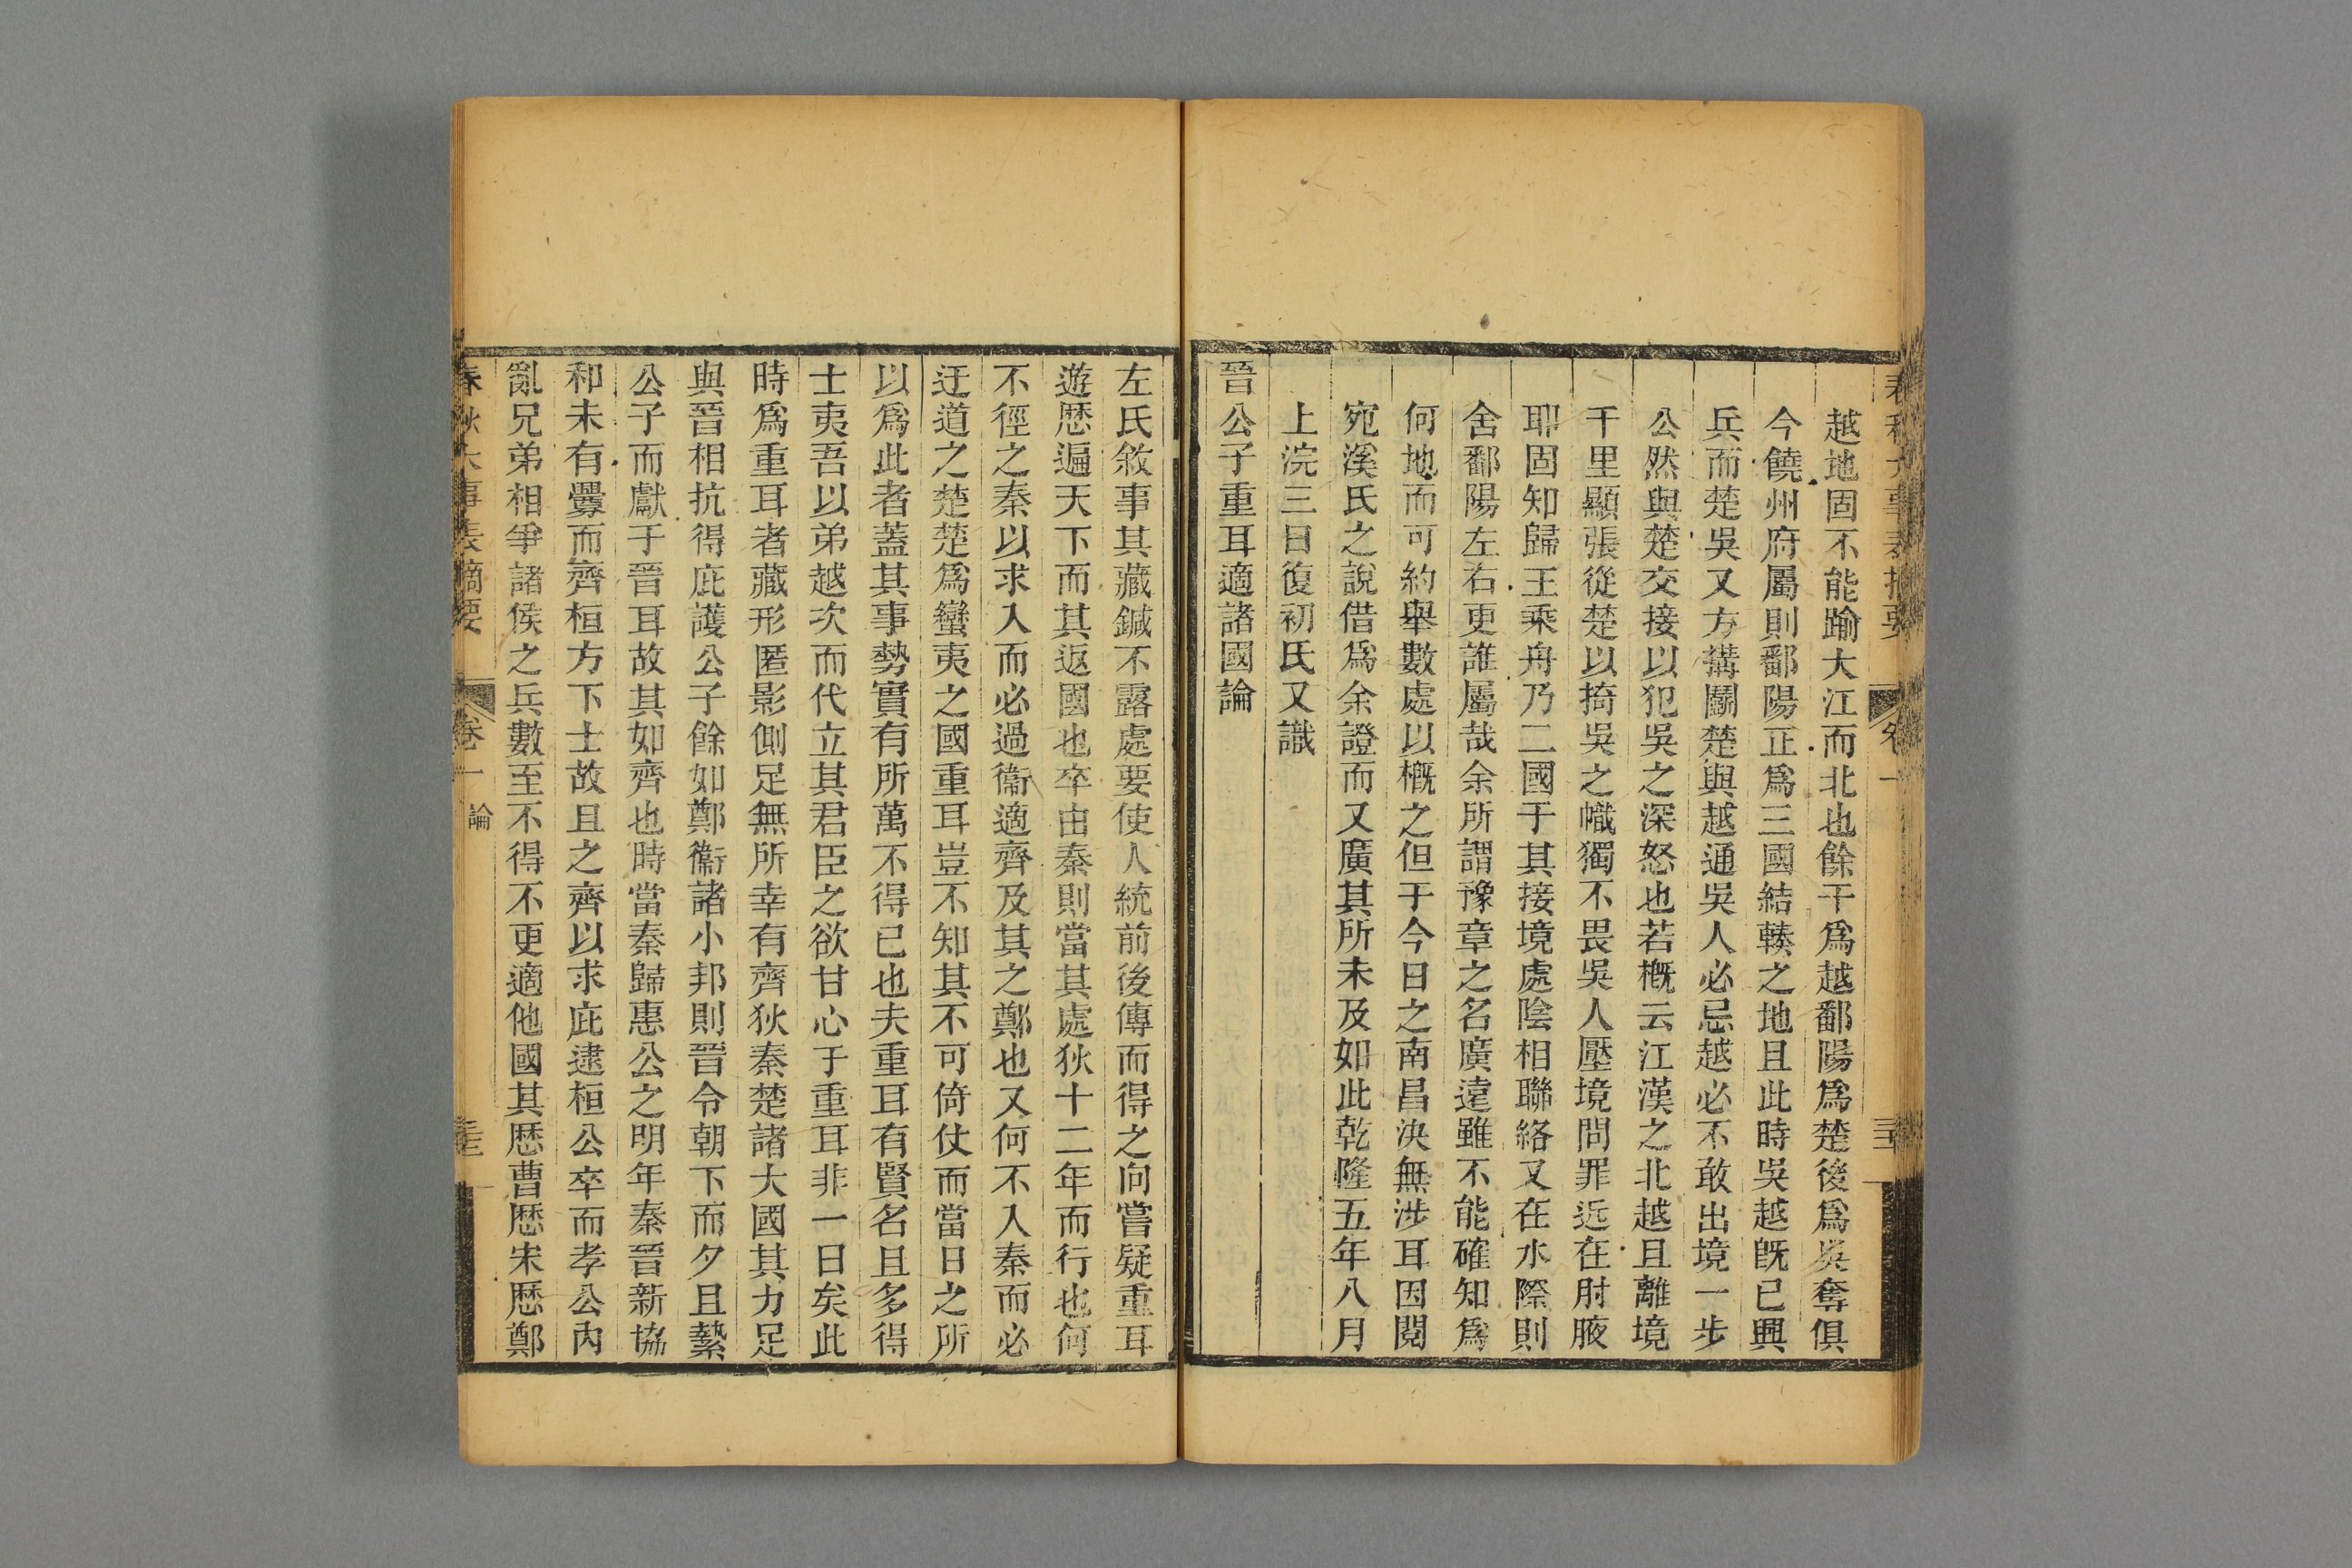 越地固不能踰大江而北也餘干爲越鄱陽爲楚後爲吳奪俱
今饒州府屬則鄱陽正爲三國結轃之地且此時吳越旣已興
兵而楚吳又方搆鬭楚與越通吳人必忌越必不敢出境一步
公然與楚交接以犯吳之深怒也若槪云江漢之北越且離境
千里顯張從楚以掎吳之幟獨不畏吳人壓境問罪近在肘腋
耶固知歸王乘舟乃二國于其接境處陰相聯絡又在水際則
舍鄱陽左右更誰屬哉余所謂豫章之名廣遠雖不能確知爲
何地而可約舉數處以槪之但于今日之南昌決無涉耳因閱
宛溪氏之說借爲余證而又廣其所未及如此乾隆五年八月
上浣三日復初氏又識
晉公子重耳適諸國論
左氏敘事其藏鍼不露處要使人統前後傳而得之向嘗疑重耳
遊歷遍天下而其返國也卒由秦則當其處狄十二年而行也何
不徑之秦以求入而必過衞適齊及其之鄭也又何不入秦而必
迂道之楚楚爲蠻夷之國重耳豈不知其不可倚仗而當日之所
以爲此者蓋其事勢實有所萬不得已也夫重耳有賢名且多得
士夷吾以弟越次而代立其君臣之欲甘心于重耳非一日矣此
時爲重耳者藏形匿影側足無所幸有齊狄秦楚諸大國其力足
與晉相抗得庇護公子餘如鄭衞諸小邦則晉令朝下而夕且縶
公子而獻于晉耳故其如齊也時當秦歸惠公之明年秦晉新協
和未有釁而齊桓方下士故且之齊以求庇逮桓公卒而孝公內
亂兄弟相爭諸侯之兵數至不得不更適他國其歷曹歷宋歷鄭
春秋大事表摘要 卷一 論